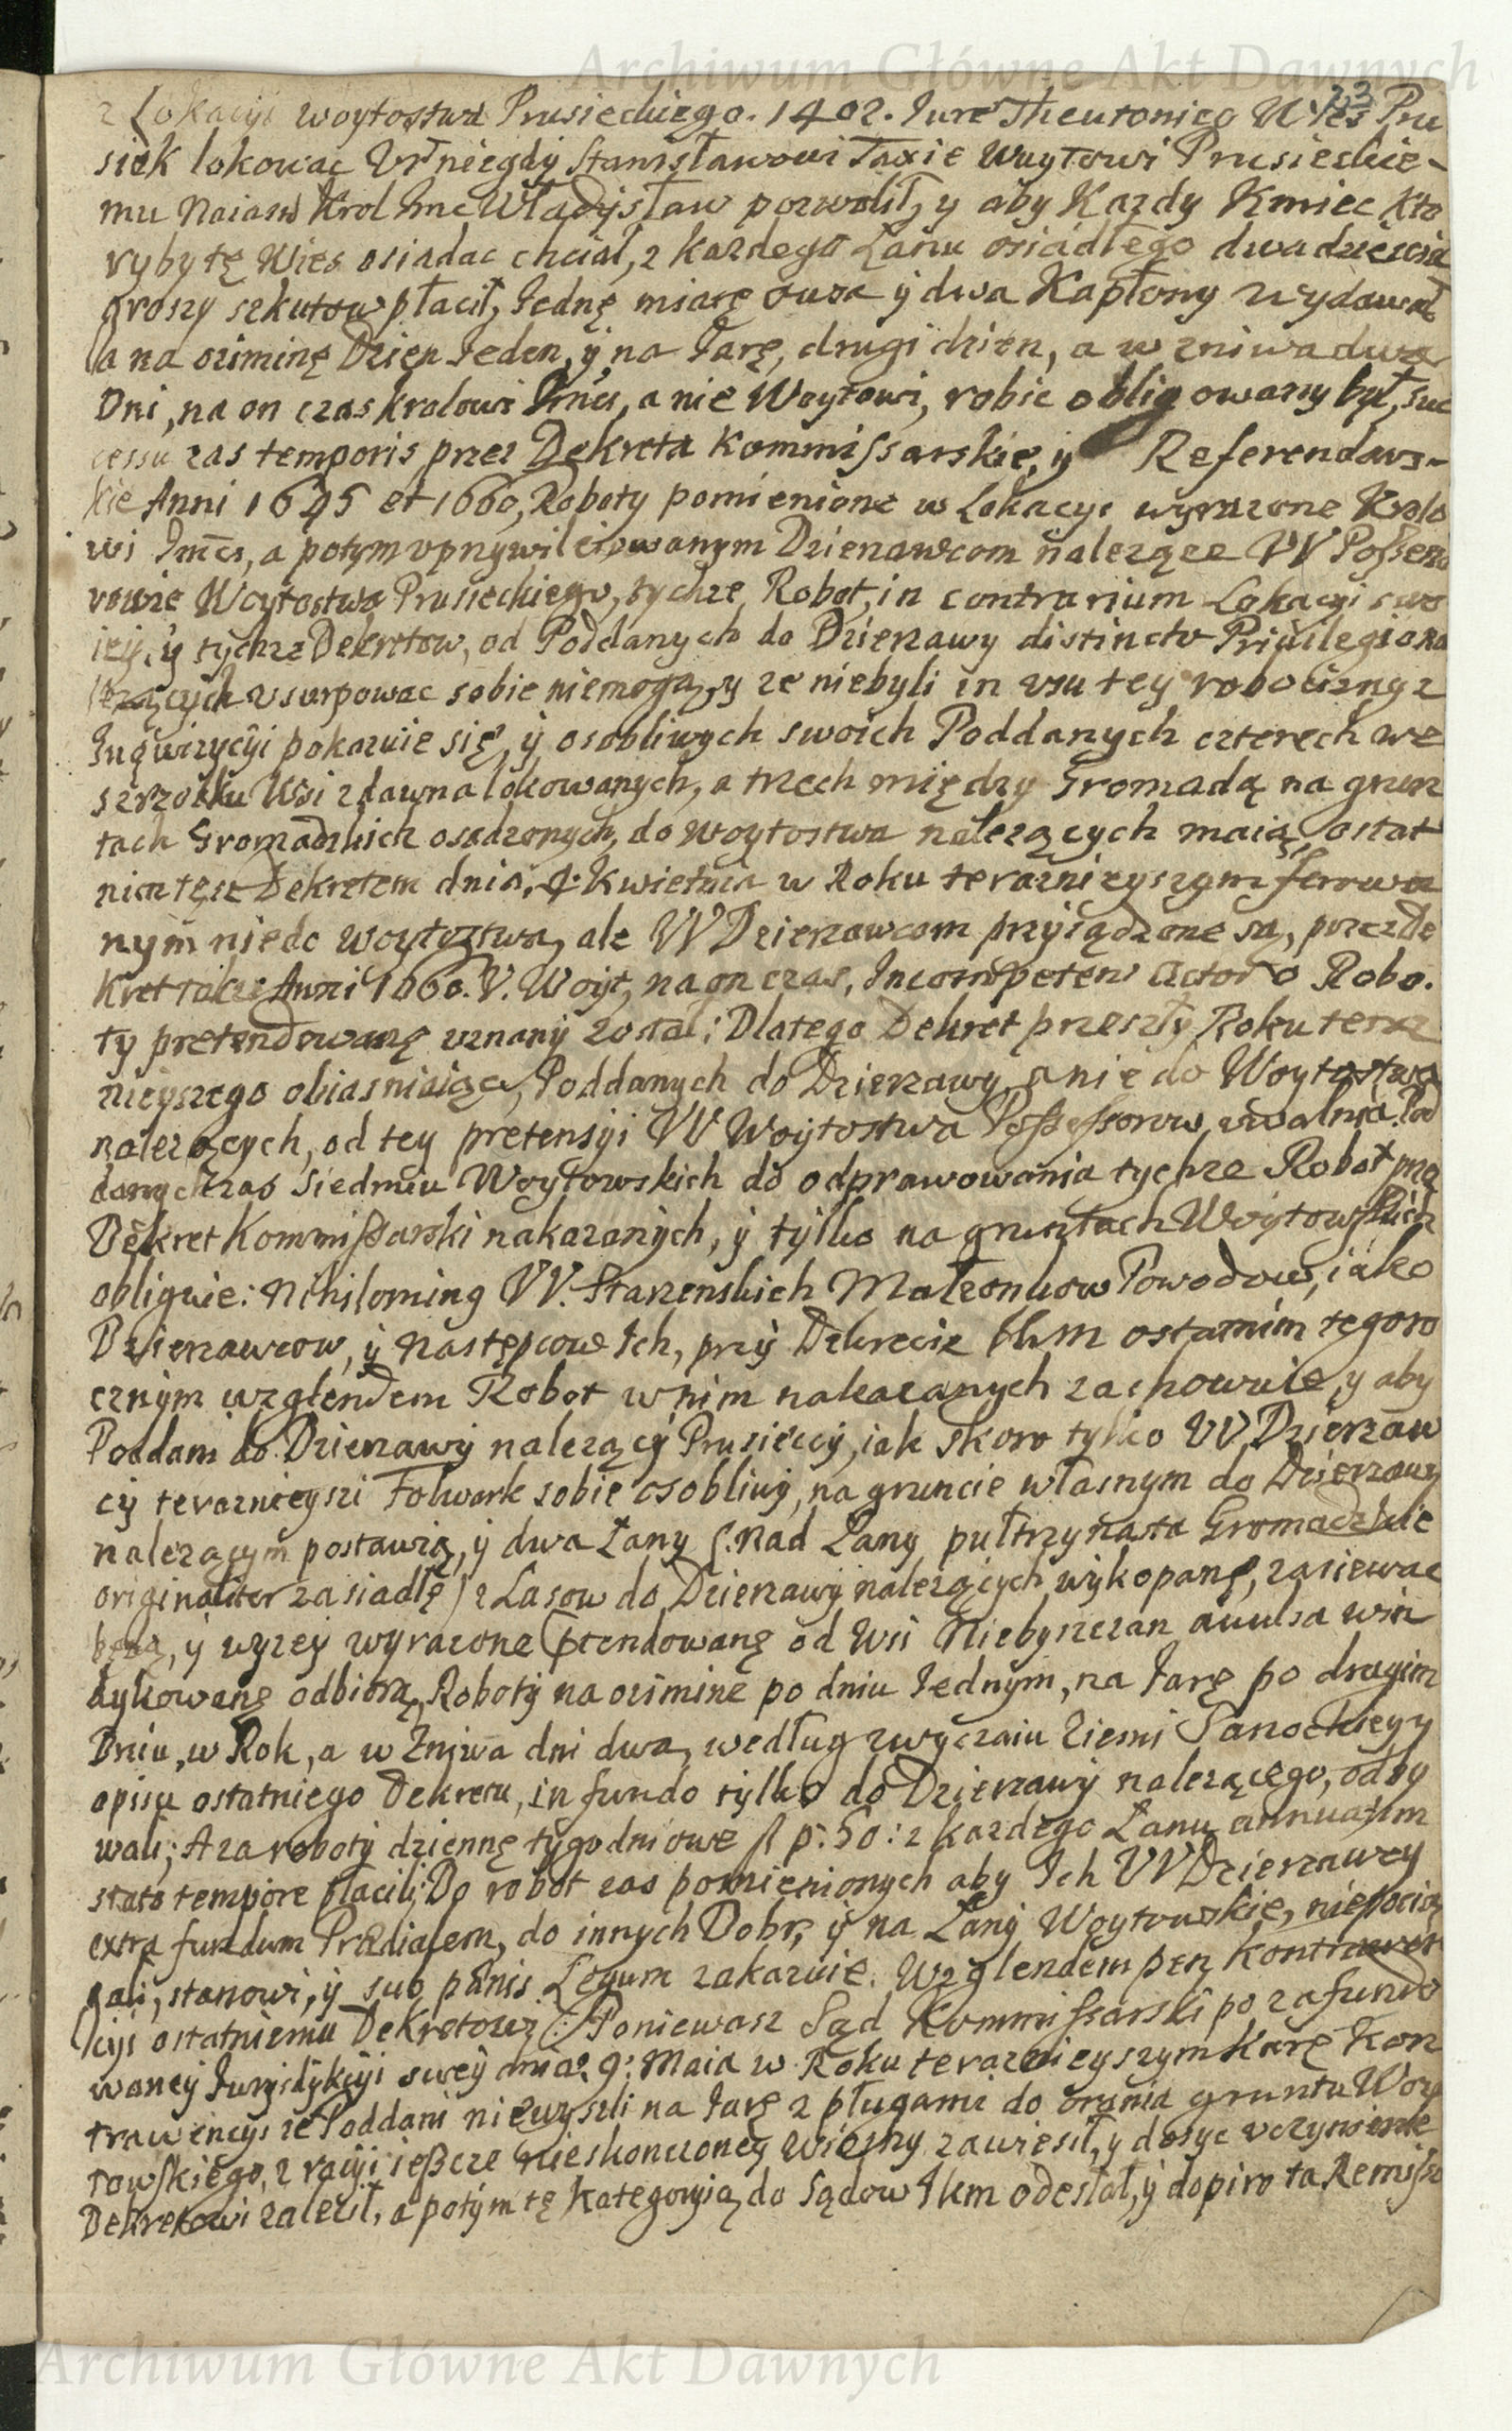 Archiwum Główne Akt Dawnych
23
z Lokacyi woytostwa Prusieckiego. 1402. Jure Theutonico Wies Pru
siek lokowac Ur niegdy Stanisławowi Taxie Woytowi Prusieckie-
mu Naiasń Krol Jmc Władysław pozwolił, y aby Kazdy Kmiec kto
ryby tę Wies osiadac chciał, z kazdego Łanu osiadłego dwadziescia
groszy szkutow płacił, Jednę miarę owsa y dwa Kapłony wydawał
a na oziminę Dzien Jeden, y na Jarę, drugi dzien, a w zniwa dwa
Dni, na on czas krolowi Jmci, a nie Woytowi, robic obligowany był, suc
cessu zas temporis przez Dekreta Kommissarskie, y Referendars-
kie Anni 1645 et 1660, Roboty pomienione w Lokacyi wyrazone Krolo
wi Jmci, a potym uprzywileiowanym Dzierzawcom nalezące VV Possesso
rowie Woytostwa Prusieckiego, tychze Robot, in contrarium Lokacyi swo
iey, y tychze Dekretow, od Poddanych do Dzierzawy distincto Priuilegio na
lezących usurpowac sobie niemogą, y ze niebyli in usu tey robocizny z
Inquizycyi pokazuie się, y osobliwych swoich Poddanych czterech we
szrzodku Wsi zdawna lokowanych, a trzech między Gromadą na grun
tach Gromadzkich osadzonych, do woytostwa nalezących maią, ostat
nim tęsz Dekretem dnia 4 Kwietnia w Roku teraznieyszym ferowa
nym niedo woytostwa, ale VV Dzierzawcom przysądzone są, przez De
kret takze Anni 1660. V. Woyt, na on czas, Incompetens Actor o Robo.
ty pretendowanę uznany został; Dlatego Dekret przeszły Roku teraz
nieyszego obiasniaiąc, Poddanych do Dzierzawy a nie do Woytostwa
nalezących, od tey pretensyi VV Woytostwa Possessorow uwalnia. Pod
danych zas Siedmiu Woytowskich do odprawowania tychze Robot przez
Dekret Kommissarski nakazanych, y tylko na gruntach Woytowskich
obliguie: Nihilominq VV. Starzenskich Małzonkow Powodow, iako
Dzierzawcow, y Następcow Ich, przy Dekrecie ostatnim tegoro
cznym względem Robot w nim nakazanych zachowuie, y aby
Poddani do Dzierzawy nalezący Prusieccy, iak skoro tylko VV Dzierzaw
cy teraznieyszi Folwark sobie osobliwy, na gruncie własnym do Dzierzawy
nalezącym postawią, y dwa Łany (: Nad Łany pułtrzynasta Gromadzkie
originaliter zasiadłę) z Lasow do Dzierzawy nalezących wykopanę, zasiewac
będą, y wyzey wyrazone ptendowanę od Wsi Niebyszczan auulsa win
dykowanę odbiorą, Roboty na oziminę po dniu Jednym, na Jarę po drugim
Dniu, w Rok, a w Zniwa dni dwa, według zwyczaiu Ziemi Sanockiey y
opisu ostatniego Dekretu, in fundo tylko do Dzierzawy nalezącego, odby
wali; A za roboty dziennę tygodniowe fl p: 50: z kazdego Łanu annuatim
stato tempore płacili; Do robot zas pomienionych aby Ich VV Dzierzawcy
extra fundum Prædialem, do innych Dobr, y na Łany Woytowskie, niepocią
gali, stanowi, y sub pænis Legum zakazuie. Względem pen Kontrawen
cyi ostatniemu Dekretowi (: Poniewasz Sąd Kommissarski po zafundo
waney Jurysdykcyi swey dnia 9: Maia w Roku teraznieyszym Karę Kon
trawencyi ze Poddani niewyszli na Jarę z pługami do orania gruntu Woy
towskiego, z racyi ieszcze nieskonczoney Wiosny zawiesił, y dosyc uczynienie
Dekretowi zalecił, a potym tę kategoryią do Sądow Jkm odesłał, y dopiro ta Remissa
Archiwum Główne Akt Dawnych